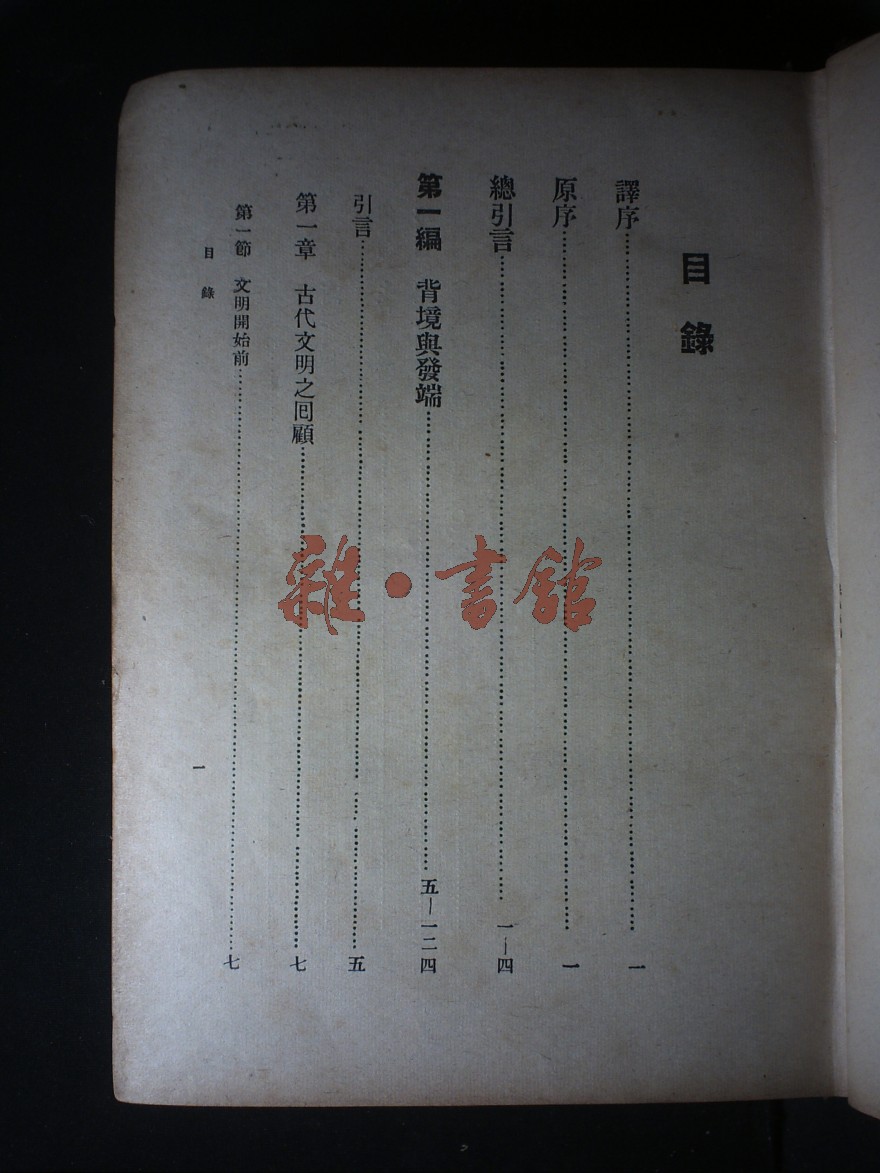 目錄
譯序……一
原序……一
總引言……一—四
第一編　背境與發端……五—一二四
引言……五
第一章　古代文明之囘顧……七
第一節　文明開始前……七
目錄
一
雜·書館